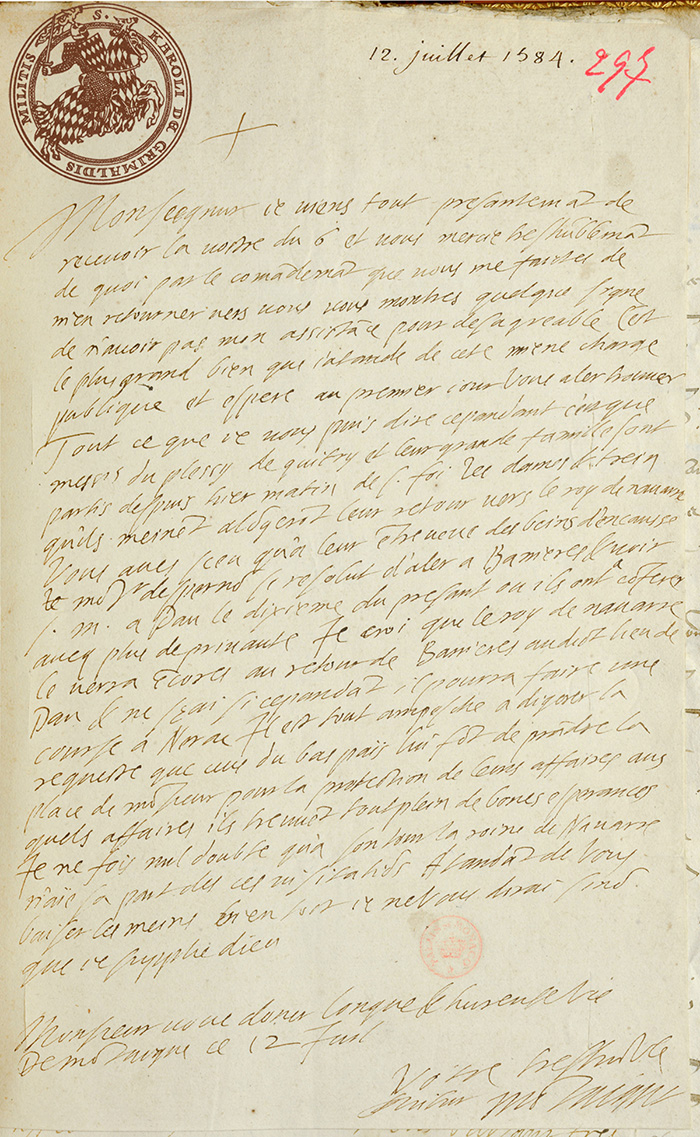 MILITIS S. KAROLI DE GRIMALDIS
12. juillet 1584.
295
Monseignur ie viens tout presantemãt de
recevoir la vostre du 6 et vous mercie treshũblemãt
de quoi par le comãdemãt que vous me faites de
m'en retourner vers vous vous montres quelque signe
de n'avoir pas mon assistãce pour desagreable C'est
le plus grand bien que i'atande de cete miene charge
publique et espere au premier iour vous aler trouver
Tout ce que ie vous puis dire cepandant c'est que
messrs du plessy de quitry et leur grande famille sont
partis despuis hier matin de s. foi Les dames
qu'ils meinẽt alõgerõt leur retour vers le roy de navarre
Vous aves sceu qu'a leur ẽtreveue des beins d'encausse
le mosr d'espernõ se resolut d'aler a Banieres & voir
s. m. a Pau le dixieme du presant ou ils ont a cõferer
aveq plus de privaute Je croi que le roy de navarre
le verra ẽcores au retour de Banieres audict lieu de
Pau & ne sçai si cepandãt il pourra faire une
course à Nerac Il est tout ampeschè a digerer la
requeste que ceus du bas païs lui fõt de prãdre la
place de mõsieur pour la protection de leurs affaires aus
quels affaires ils treuvẽt tout plein de bones esperances
Je ne fois nul doubte qu'a son tour la roine de Navarre
n'aïe sa part des ces visitatiõs Atandãt de vous
baiser les meins bien tost ie ne vous dirai sinõ
que ie supplie dieu
Monsieur vous doner longue & hureuse vie
De mõtaigne ce 12 Juil
Votre treshũble
servitur montaigne